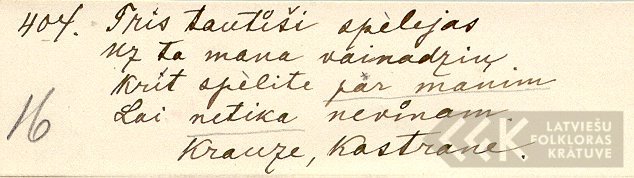 404. Trīs tautīši spèlejas
Uz ta mana vainadziņ
Krīt spèlite par manim
Lai netika nevīnam.
16
Krauze, Kastrane.
LATVIEŠU
FOLKLORAS
KRĀTUVE